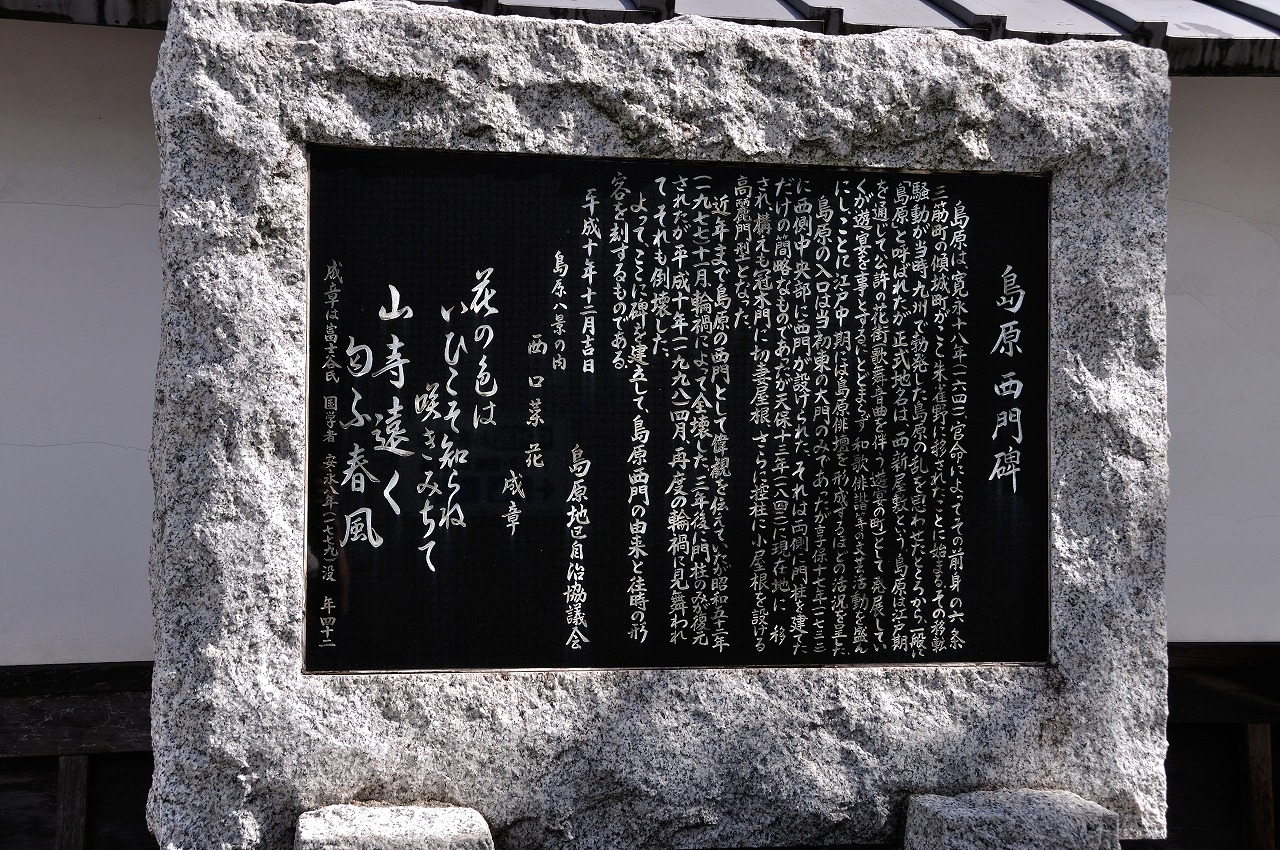 島原西門碑
島原は寛永十八年(一六四一)官命によってその前身の六条
三筋町の傾城町がここ朱雀野に移されたことに始まるその移転
騒動が当時、九州で勃発した島原の乱を思わせたところから、一般に
「島原」と呼ばれたが正式地名は「西新屋敷」という島原は江戸期
を通じて公許の花街(歌舞音曲を伴う遊宴の町)として発展してい
くが遊宴を事とするにとどまらず和歌俳諧等の文芸活動も盛ん
にしてことに江戸中期には島原俳壇を形成するほどの活況を呈した
島原の入口は当初東の大門のみであったが享保十七年(一七三二)
に西側中央部に西門が設けられた。それは両側に門柱を建てた
だけの簡略なものであったが天保十三年(一八四二)に現在地に移
され、構えも冠木門に切妻屋根、さらに控柱に小屋根を設ける
高麗門型となった。
近年まで島原の西門として偉観を伝えていたが昭和五十二年
(一九七七)十一月、輪禍によって全壊した。三年後に門柱のみが復元
されたが平成十年(一九九八)四月、再度の輪禍に見舞われ
て、それも倒壊した。
よってここに碑を建立して、島原西門の由来と往時の形
容を刻するものである。
平成十年十二月吉日
島原地区自治協議会
島原八景の内
西口菜花
成章
花の色は
いひこそ知らね
咲きみちて
山寺遠く
匂ふ春風
成章は富士谷氏 国学者 安永八年(一七七九)没 年四十二